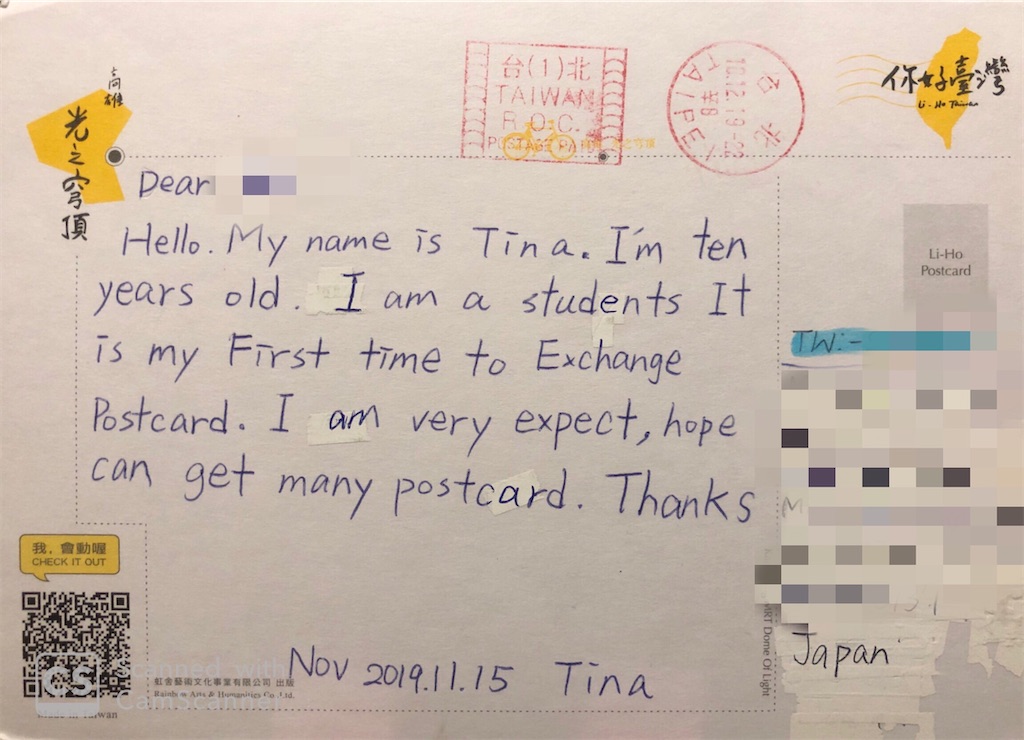 高雄
光之穹頂
台(1)北
TAIWAN
R.O.C.
POSTAGE PAID
台北
10.12.19-22
TAIPEI
你好臺灣
Li-Ho Taiwan
Dear
Hello. My name is Tina. I'm ten
years old. I am a students It
is my First time to Exchange
Postcard. I am very expect, hope
can get many postcard. Thanks
Nov 2019.11.15 Tina
Li-Ho
Postcard
TW:-
M
Japan
MRT Dome Of Light
我,會動喔
CHECK IT OUT
虹舍藝術文化事業有限公司 出版
Rainbow Arts & Humanities Co., Ltd.
Made in Taiwan
CS
Scanned with
CamScanner